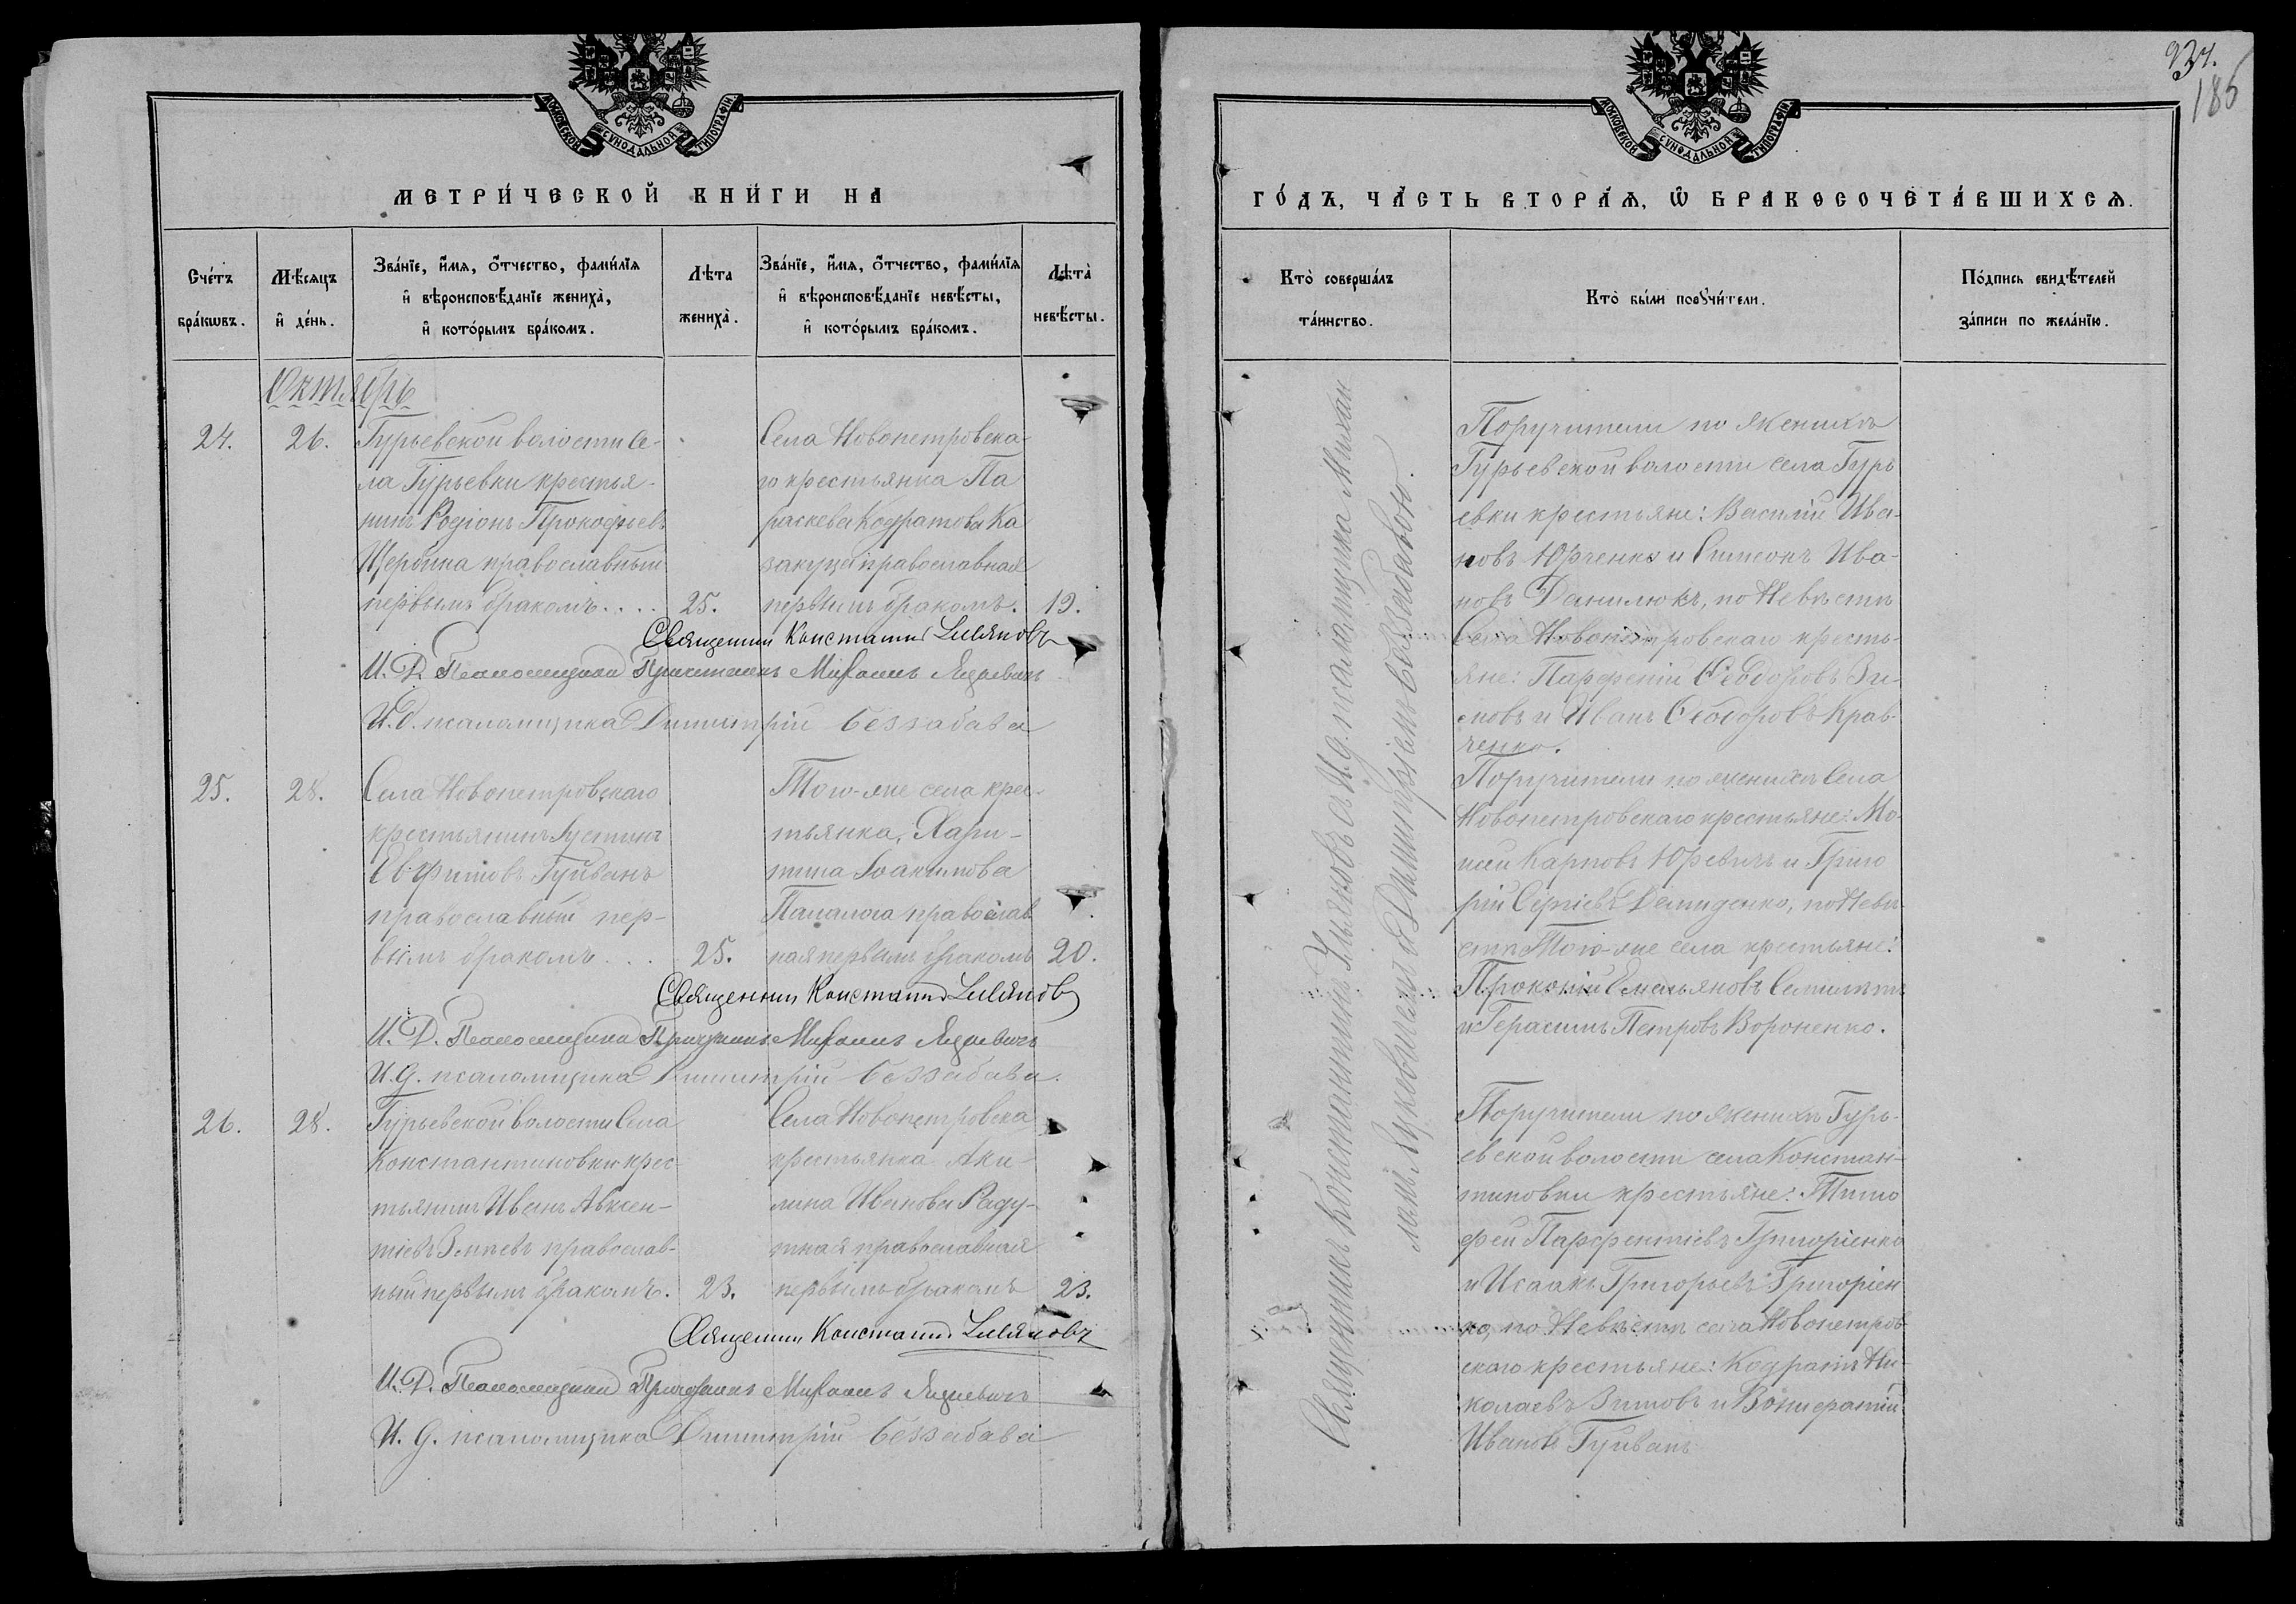 МОСКОВСКОЙ СѴНОДАЛЬНОЙ ТИПОГРАФІИ.
МЕТРИ́ЧЕСКОЙ КНИ́ГИ НА
Сче́тъ
бра́кѡвъ.
Мѣ́сяцъ
и҆ де́нь.
Зва́нїе, и҆́мя, ѻ҆́тчество, фами́лїя
и҆ вѣроисповѣ́данїе жениха̀,
и҆ кото́рымъ бра́комъ.
Лѣта
жениха̀.
Зва́нїе, и҆́мя, ѻ҆́тчество, фами́лїя
и҆ вѣроисповѣ́данїе невѣ́сты,
и҆ кото́рымъ бра́комъ.
Лѣта̀
невѣ́сты.
Октябрь
24.
26.
Гурьевской волости Се-
ла Гурьевки крестья-
нинъ Родіонъ Прокофьевъ
Щербина православный
первымъ бракомъ....
25.
Села Новопетровска-
го крестьянка Па
раскева Кодратова Ка
закуца православная
первымъ бракомъ.
19.
Священник Константин Ильяновъ
И. Д. Псаломщика Михаилъ
И. д. псаломщика Димитрій Беззабава
25.
28.
Села Новопетровскаго
крестьянинъ Іустинъ
Евфимовъ Гуйванъ
православный пер-
вымъ бракомъ...
25.
Того-же села крес-
тьянка, Хари-
тина Іоакимова
Папалога православ
ная первымъ бракомъ
20.
Священник Константин Ильянов
И. Д. Псаломщика Михаилъ
И. д. псаломщика Димитрій Беззабава.
26.
28.
Гурьевской волости Села
Константиновки крес-
тьянинъ Иванъ Авксен-
тіевъ Зміевъ православ-
ный первымъ бракомъ.
23.
Села Новопетровска
крестьянка Аки-
лина Иванова Раду-
тная православная
первымъ бракомъ
23.
Священник Константин Ильяновъ
И. Д. Псаломщика Михаилъ
И. д. псаломщика Димитрій Беззабава
МОСКОВСКОЙ СѴНОДАЛЬНОЙ ТИПОГРАФІИ.
185
ГО́ДЪ, ЧА́СТЬ ВТОРА́Я, Ѡ҆ БРАКОСОЧЕТА́ВШИХСЯ.
Кто̀ соверша́лъ
та́инство.
Кто̀ бы́ли порꙋчи́тели.
По́дпись свидѣ́телей
за́писи по жела́нїю.
Священникъ Константинъ Ильяновъ съ И. д. псаломщика Михаи
ломъ и Димитріемъ Беззабавою.
Поручители по женихѣ
Гурьевской волости села Гурь
евки крестьяне: Василій Ива-
новъ Юрченко и Симеонъ Ива-
новъ Данилюкъ, по Невѣстѣ
Села Новопетровскаго кресть-
яне: Парфеній Ѳеодоровъ Зи-
мовъ и Иванъ Ѳеодоровъ Крав-
ченко.
Поручители по женихѣ Села
Новопетровскаго крестьяне: Мо-
исей Карповъ Юревичъ и Григо
рій Сергіевъ Демиденко, по Невѣ-
стѣ Того-же села крестьяне:
Прокопій Емельяновъ
и Герасимъ Петровъ Вороненко.
Поручители по женихѣ Гурь-
евской волости села Констан-
тиновки крестьяне: Тимо
фей Парфентіевъ Григоріенко
и Исаакъ Григорьевъ Григоріен
ко, по Невѣстѣ села Новопетров-
скаго крестьяне: Кодратъ Ни-
колаевъ Зимовъ и Вонифатій
Ивановъ Гуйванъ